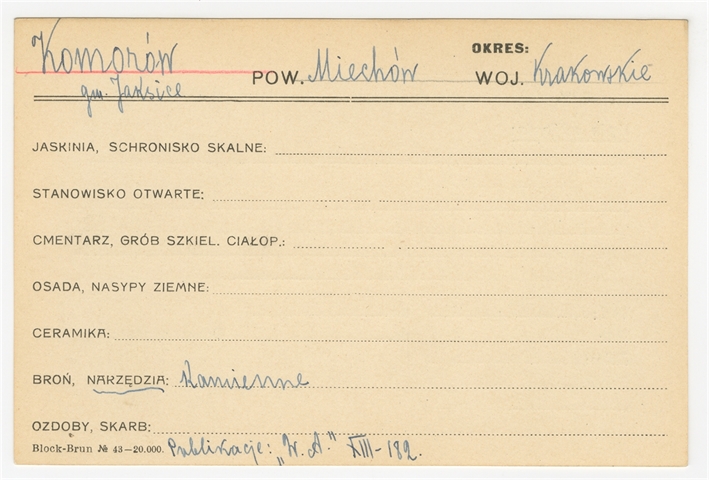 Komorów
gm. Jaksice
POW. Miechów
OKRES:
WOJ. Krakowskie
JASKINIA, SCHRONISKO SKALNE:
STANOWISKO OTWARTE:
CMENTARZ, GRÓB SZKIEL. CIAŁOP.:
OSADA, NASYPY ZIEMNE:
CERAMIKA:
BROŃ, NARZĘDZIA: Kamienne
OZDOBY, SKARB:
Block-Brun № 43–20.000. Publikacje: „W. A." XIII-182.